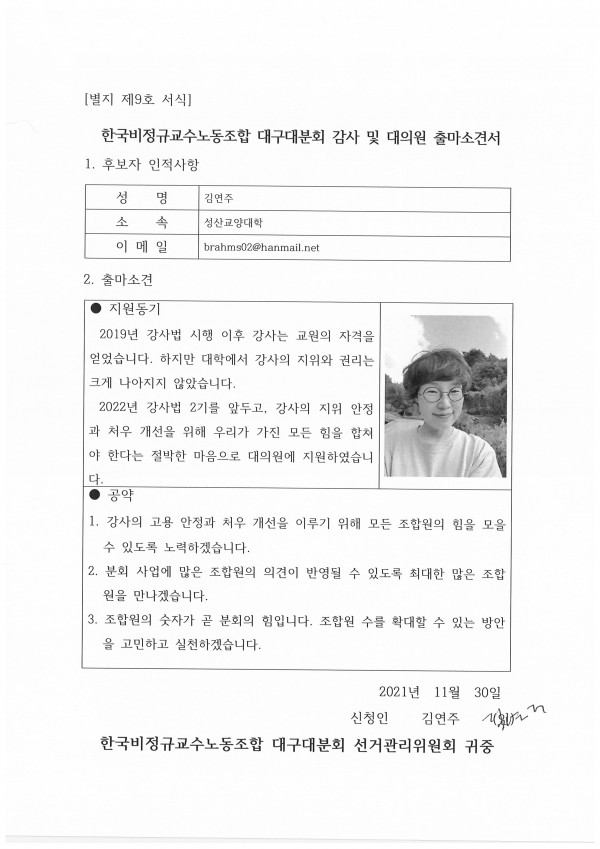 [별지 제9호 서식]
한국비정규교수노동조합 대구대분회 감사 및 대의원 출마소견서
1. 후보자 인적사항
성 명 김연주
소 속 성산교양대학
이 메 일 brahms02@hanmail.net
2. 출마소견
● 지원동기
2019년 강사법 시행 이후 강사는 교원의 자격을
얻었습니다. 하지만 대학에서 강사의 지위와 권리는
크게 나아지지 않았습니다.
2022년 강사법 2기를 앞두고, 강사의 지위 안정
과 처우 개선을 위해 우리가 가진 모든 힘을 합쳐
야 한다는 절박한 마음으로 대의원에 지원하였습니
다.
● 공약
1. 강사의 고용 안정과 처우 개선을 이루기 위해 모든 조합원의 힘을 모을
수 있도록 노력하겠습니다.
2. 분회 사업에 많은 조합원의 의견이 반영될 수 있도록 최대한 많은 조합
원을 만나겠습니다.
3. 조합원의 숫자가 곧 분회의 힘입니다. 조합원 수를 확대할 수 있는 방안
을 고민하고 실천하겠습니다.
2021년 11월 30일
신청인 김연주
한국비정규교수노동조합 대구대분회 선거관리위원회 귀중